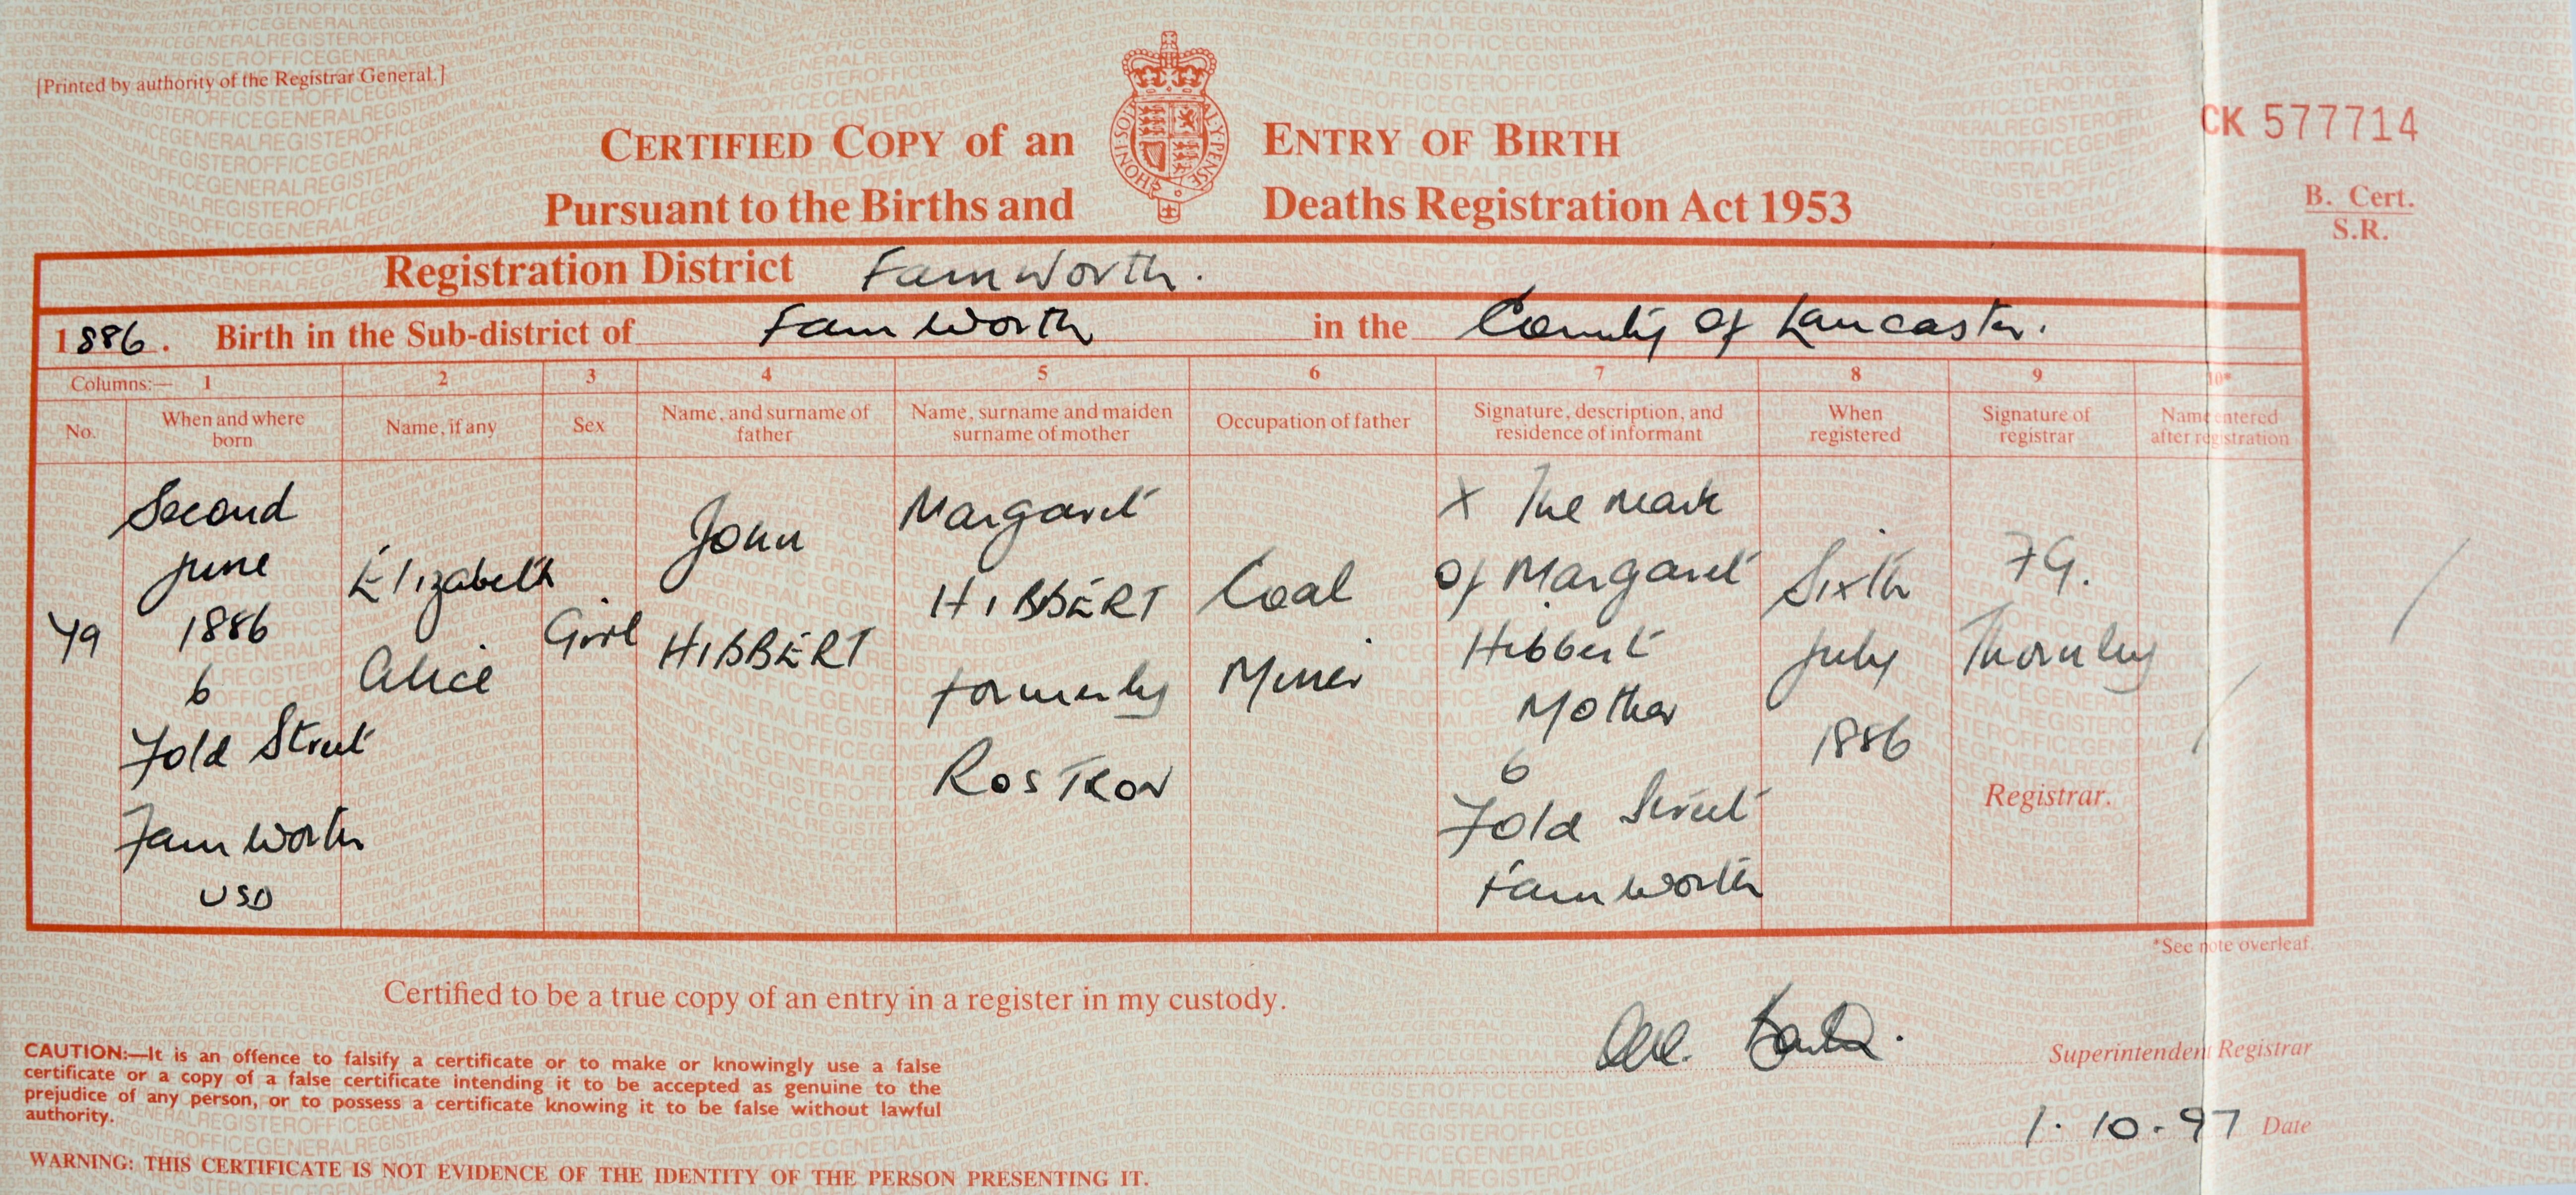 [Printed by authority of the Registrar General.]
CERTIFIED COPY of an ENTRY OF BIRTH
Pursuant to the Births and Deaths Registration Act 1953
HONI·SOIT AL·Y·PENSE
CK 577714
B. Cert.
S.R.
Registration District Farnworth.
1886. Birth in the Sub-district of Farnworth in the County of Lancaster.
Columns:— 1 2 3 4 5 6 7 8 9 10*
No.
When and where
born
Name, if any
Sex
Name, and surname of
father
Name, surname and maiden
surname of mother
Occupation of father
Signature, description, and
residence of informant
When
registered
Signature of
registrar
Name entered
after registration
Second
June
1886
6
Fold Street
Farnworth
USD
Elizabeth
Alice
Girl
John
HIBBERT
Margaret
HIBBERT
formerly
ROSTRON
Coal
Miner
X The mark
of Margaret
Hibbert
Mother
6
Fold Street
Farnworth
Sixth
July
1886
Thornley
Registrar.
*See note overleaf.
Certified to be a true copy of an entry in a register in my custody.
Superintendent Registrar
1.10.97 Date
CAUTION:—It is an offence to falsify a certificate or to make or knowingly use a false
certificate or a copy of a false certificate intending it to be accepted as genuine to the
prejudice of any person, or to possess a certificate knowing it to be false without lawful
authority.
WARNING: THIS CERTIFICATE IS NOT EVIDENCE OF THE IDENTITY OF THE PERSON PRESENTING IT.